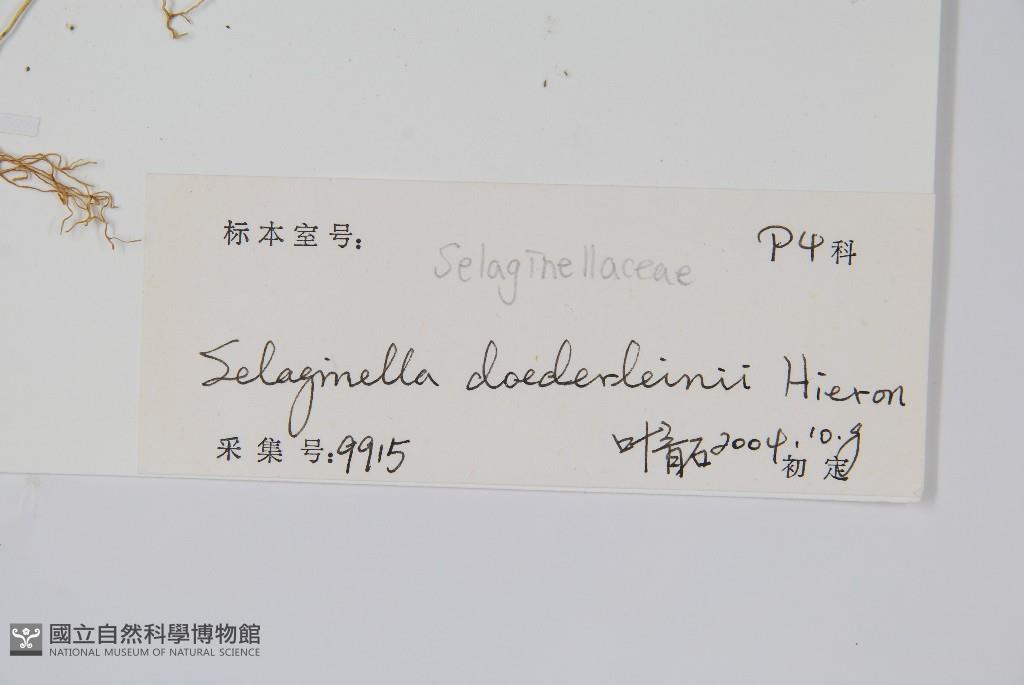 标本室号:
P4科
Selaginellaceae
Selaginella doederleinii Hieron
采集号:9915
叶育石2004.10.9
初定
國立自然科學博物館
NATIONAL MUSEUM OF NATURAL SCIENCE